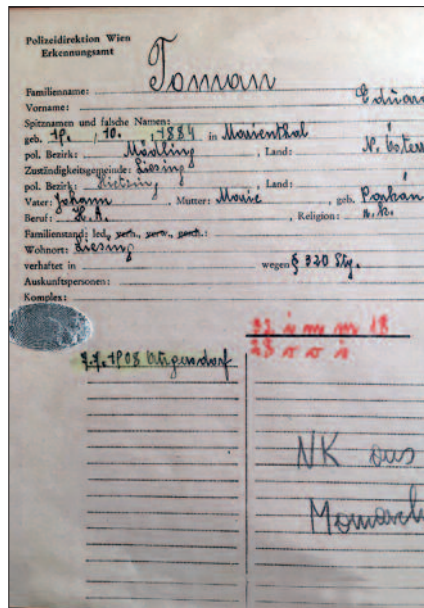 Polizeidirektion Wien
Erkennungsamt
Familienname: Toman
Vorname: Eduard
Spitznamen und falsche Namen:
geb. 19. / 10. / 1884 in Marienthal
pol. Bezirk: Mödling, Land: N. Österr
Zuständigkeitsgemeinde: Liesing
pol. Bezirk: Hietzing, Land:
Vater: Johann, Mutter: Marie, geb.
Beruf: H.A., Religion: r. k.
Familienstand: led., verh., verw., gesch.:
Wohnort: Liesing
verhaftet in wegen § 320 Stg.
Auskunftspersonen:
Komplex:
32 18
28
7.7.1908 Atzgersdorf
NK aus
Monarch